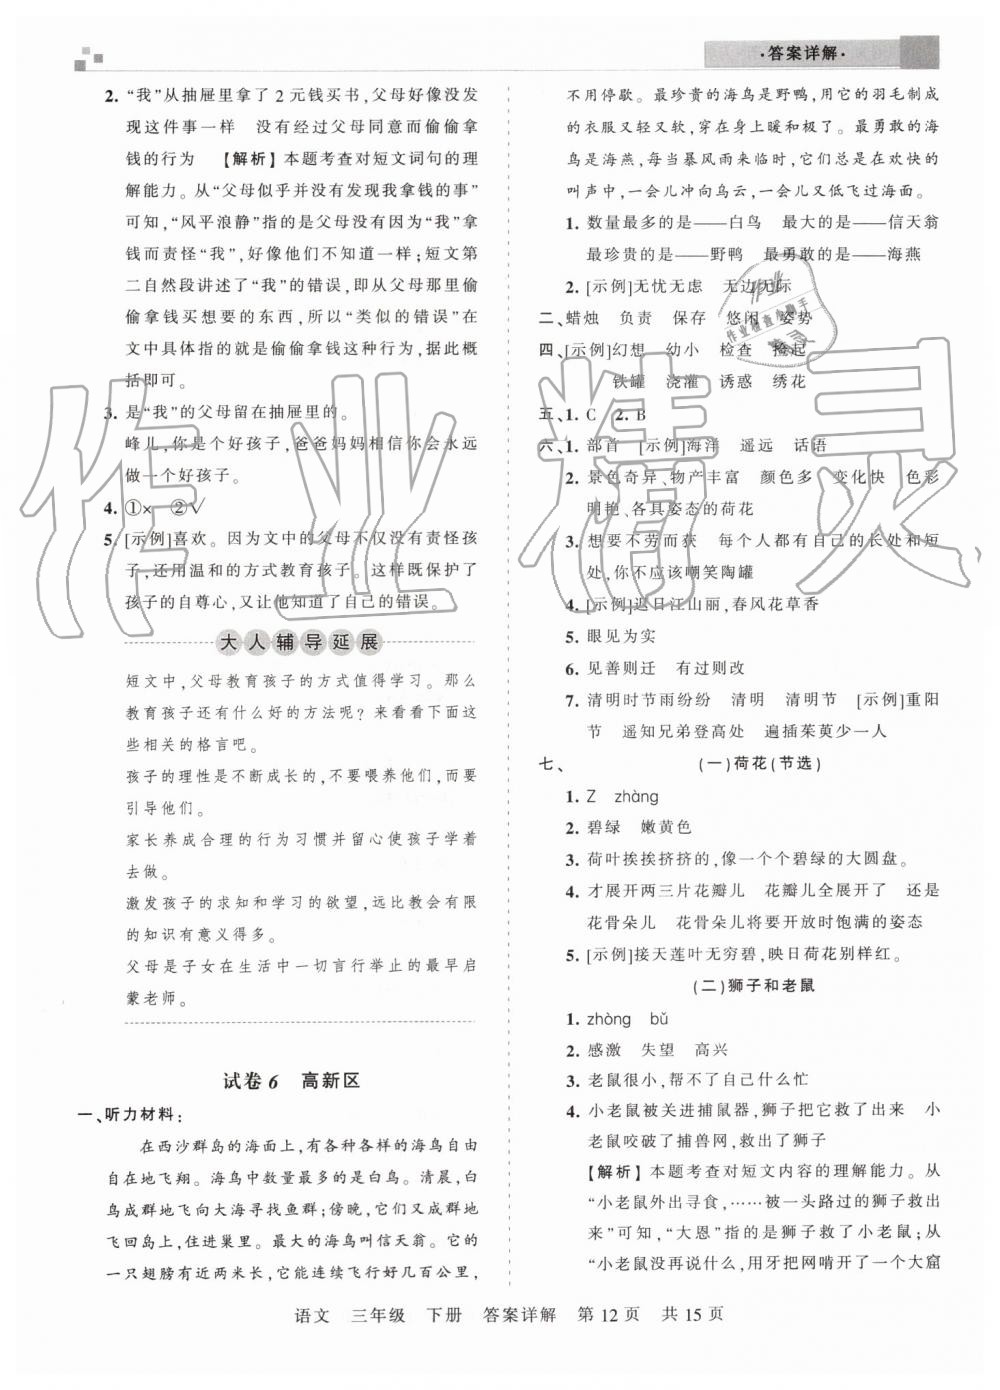 ·答案详解·
2. “我”从抽屉里拿了2元钱买书,父母好像没发
现这件事一样　没有经过父母同意而偷偷拿
钱的行为　【解析】本题考查对短文词句的理
解能力。从“父母似乎并没有发现我拿钱的事”
可知,“风平浪静”指的是父母没有因为“我”拿
钱而责怪“我”,好像他们不知道一样;短文第
二自然段讲述了“我”的错误,即从父母那里偷
偷拿钱买想要的东西,所以“类似的错误”在
文中具体指的就是偷偷拿钱这种行为,据此概
括即可。
3. 是“我”的父母留在抽屉里的。
峰儿,你是个好孩子,爸爸妈妈相信你会永远
做一个好孩子。
4. ①×　②√
5. [示例]喜欢。因为文中的父母不仅没有责怪孩
子,还用温和的方式教育孩子。这样既保护了
孩子的自尊心,又让他知道了自己的错误。
大人辅导延展
短文中,父母教育孩子的方式值得学习。那么
教育孩子还有什么好的方法呢?来看看下面这
些相关的格言吧。
孩子的理性是不断成长的,不要喂养他们,而要
引导他们。
家长养成合理的行为习惯并留心使孩子学着
去做。
激发孩子的求知和学习的欲望,远比教会有限
的知识有意义得多。
父母是子女在生活中一切言行举止的最早启
蒙老师。
试卷6　高新区
一、听力材料:
在西沙群岛的海面上,有各种各样的海鸟自由
自在地飞翔。海鸟中数量最多的是白鸟。清晨,白
鸟成群地飞向大海寻找鱼群;傍晚,它们又成群地
飞回岛上,住进巢里。最大的海鸟叫信天翁。它的
一只翅膀有近两米长,它能连续飞行好几百公里,
不用停歇。最珍贵的海鸟是野鸭,用它的羽毛制成
的衣服又轻又软,穿在身上暖和极了。最勇敢的海
鸟是海燕,每当暴风雨来临时,它们总是在欢快的
叫声中,一会儿冲向乌云,一会儿又低飞过海面。
1. 数量最多的是——白鸟　最大的是——信天翁
最珍贵的是——野鸭　最勇敢的是——海燕
2. [示例]无忧无虑　无边无际
二、蜡烛　负责　保存　悠闲　姿势
四、[示例]幻想　幼小　检查　捡起
铁罐　浇灌　诱惑　绣花
五、1. C　2. B
六、1. 部首　[示例]海洋　遥远　话语
2. 景色奇异、物产丰富　颜色多　变化快　色彩
明艳、各具姿态的荷花
3. 想要不劳而获　每个人都有自己的长处和短
处,你不应该嘲笑陶罐
4. [示例]迟日江山丽,春风花草香
5. 眼见为实
6. 见善则迁　有过则改
7. 清明时节雨纷纷　清明　清明节　[示例]重阳
节　遥知兄弟登高处　遍插茱萸少一人
七、　(一)荷花(节选)
1. Z　zhàng
2. 碧绿　嫩黄色
3. 荷叶挨挨挤挤的,像一个个碧绿的大圆盘。
4. 才展开两三片花瓣儿　花瓣儿全展开了　还是
花骨朵儿　花骨朵儿将要开放时饱满的姿态
5. [示例]接天莲叶无穷碧,映日荷花别样红。
(二)狮子和老鼠
1. zhòng　bǔ
2. 感激　失望　高兴
3. 老鼠很小,帮不了自己什么忙
4. 小老鼠被关进捕鼠器,狮子把它救了出来　小
老鼠咬破了捕兽网,救出了狮子
【解析】本题考查对短文内容的理解能力。从
“小老鼠外出寻食,……被一头路过的狮子救出
来”可知,“大恩”指的是狮子救了小老鼠;从
“小老鼠没再说什么,用牙把网啃开了一个大窟
语文　三年级　下册　答案详解　第12页　共15页
作业精灵
作业检查小助手